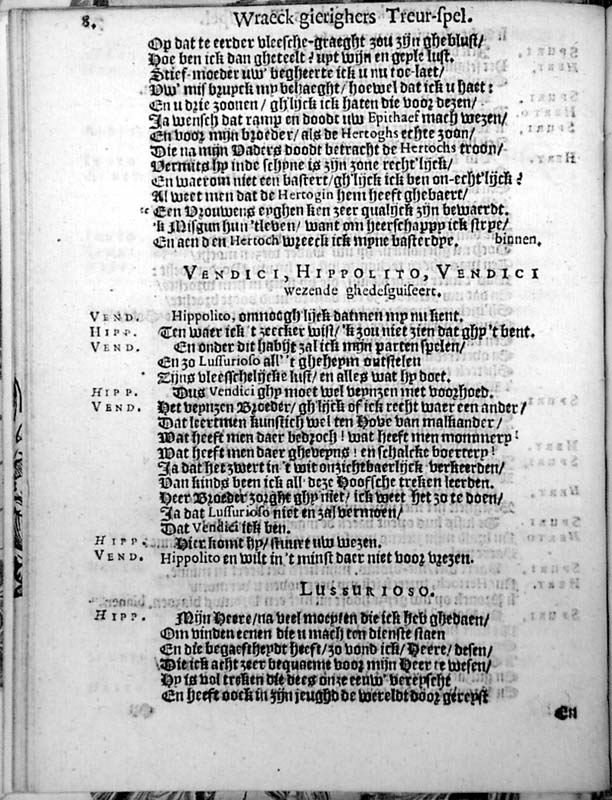 8. Wraeck-gierighers Treur-spel.
Op dat te eerder vleesche-graeght zou zijn ghebluſt/
Hoe ben ick dan gheteelt? uyt wijn en geyle luſt.
Stief-moeder uw' begheerte ick u nu toe-laet/
Uw' mis bruyck my behaeght/ hoewel dat ick u haet:
En u drie zoonen/ gh'lijck ick haten die voor dezen/
Ja wensch dat ramp en doodt uw Epithaef mach wezen/
En voor mijn broeder/ als de Hertoghs echte zoon/
Die na mijn Vaders doodt betracht de Hertochs troon/
Vermits hy inde schijne is zijn zone recht'lijck/
En waerom niet een bastert/ gh'lijck ick ben on-echt'lijck?
Al weet men dat de Hertogin hem heeft ghebaert/
" Een Vrouwens eyghen ken zeer qualijck zijn bewaerdt.
'k Misgun hun 'tleven/ want om heerschappy ick strye/
En aen den Hertoch wreeck ick myne basterdye. binnen.
VENDICI, HIPPOLITO, VENDICI
wezende ghedesguiseert.
VEND. Hippolito, omnoghlijck datmen my nu kent.
HIPP. Ten waer ick't zeecker wist/ 'k zou niet zien dat ghy 't bent.
VEND. En onder dit habijt zal ick mijn parten spelen/
En zo Lussurioso all' 't gheheym ontstelen
Zijns vleesschelijcke lust/ en alles wat hy doet.
HIPP. Dus Vendici ghy moet wel veynzen met voorhoed.
VEND. Het veynzen Broeder/ gh'lijck of ick recht waer een ander/
Dat leertmen kunstich wel ten Hove van malkander/
Wat heeft men daer bedroch! wat heeft men mommery!
Wat heeft men daer gheveyns! en schalcke boertery!
Ja dat het zwert in 't wit onzichtbaerlijck verkeerden/
Van kinds been ick all' deze Hoofsche treken leerden.
Heer Broeder zorght ghy niet/ ick weet het zo te doen/
Ja dat Lussurioso niet en zal vermoen/
Dat Vendici ick ben.
HIPP. Hier komt hy/ stuurt uw wezen.
VEND. Hippolito en wilt in 't minst daer niet voor vrezen.
LUSSURIOSO.
HIPP. Mijn Heere/ na veel moeyten die ick heb ghedaen/
Om vinden eenen die u mach ten dienste staen
En die begaeftheydt heeft/ zo vond ick/ Heere/ desen/
Die ick acht zeer bequaeme voor mijn Heer te wesen/
Hy is vol treken die dees onze eeuw' vereyscht
En heeft oock in zijn jeughd de wereldt door gereyst
En